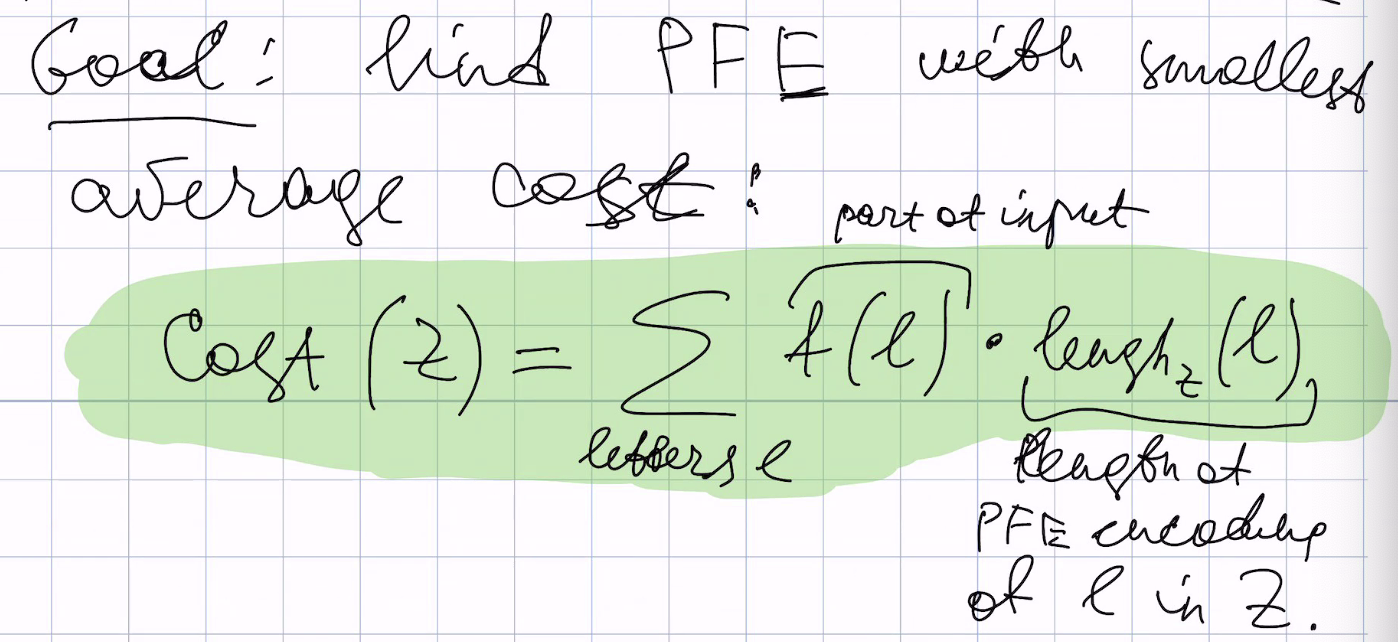 Goal: find PFE with smallest
average cost:
part of input
Cost (Z) = ∑ f(l) · lengh_Z (l)
letters l
length of
PFE encoding
of l in Z.